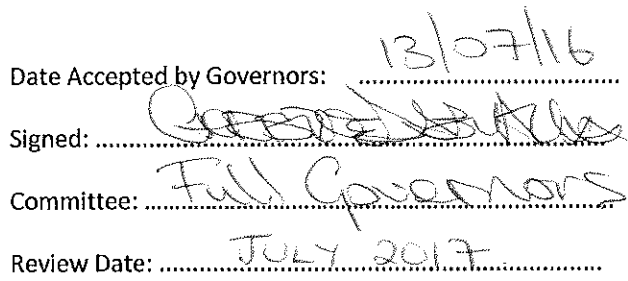 Date Accepted by Governors: 13/07/16
Signed:
Committee: Full Governors
Review Date: JULY 2017.